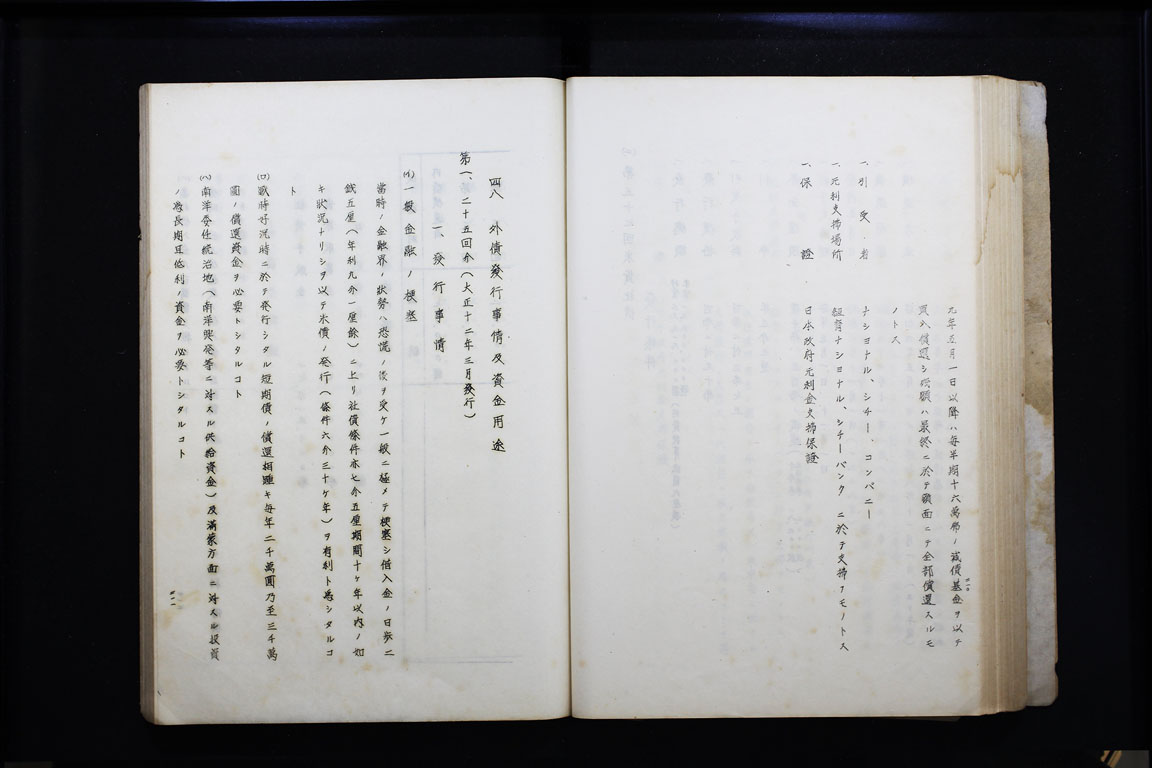 元年五月一日以降ハ毎半期十六萬弗ノ減債基金ヲ以テ
買入償還シ残額ハ最終ニ於テ額面ニテ全部償還スルモ
ノトス
一、引受者 ナショナル、シチー、コンパニー
一、元利支拂場所 紐育ナショナル、シチーバンクニ於テ支拂フモノトス
一、保證 日本政府元利金支拂保證
四八 外債發行事情及資金用途
第一、二十五回分(大正十二年三月發行)
一、發行事情
(イ)一般金融ノ梗塞
當時ノ金融界ノ狀勢ハ恐慌ノ後ヲ受ケ一般ニ極メテ梗塞シ借入金ノ日歩二
錢五厘(年利九分一厘餘)ニ上リ社債條件亦七分五厘期間十ケ年以内ノ如
キ狀況ナリシヲ以テ米債ノ発行(條件六分三十ケ年)ヲ有利ト爲シタルコ
ト
(ロ)戰時好況時ニ於テ発行シタル短期債ノ償還相踵キ毎年二千萬圓乃至三千萬
圓ノ償還資金ヲ必要トシタルコト
(ハ)南洋委任統治地(南洋興発等ニ対スル供給資金)及滿蒙方面ニ対スル投資
ノ爲長期且低利ノ資金ヲ必要トシタルコト